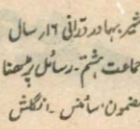 غیر بہادر درانی ۱۶ سال
جماعت ہشتم۔ رسائل پڑھنا
مضمون۔ سائنس۔ انگلش